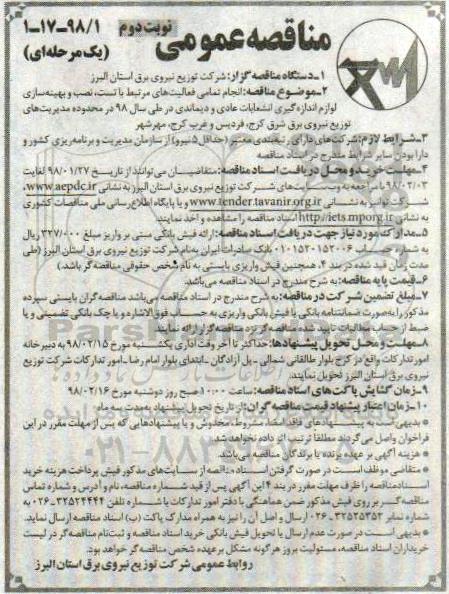 مناقصه عمومی
نوبت دوم
۱-۱۷-۹۸/۱
(یک مرحله‌ای)
۱-دستگاه مناقصه گزار: شرکت توزیع نیروی برق استان البرز
۲-موضوع مناقصه: انجام تمامی فعالیت‌های مرتبط با تست، نصب و بهینه‌سازی
لوازم اندازه‌گیری انشعابات عادی و دیماندی در طی سال ۹۸ در محدوده مدیریت‌های
توزیع نیروی برق شرق کرج، فردیس و غرب کرج، مهرشهر
۳-شرایط لازم: شرکت‌های دارای رتبه‌بندی معتبر (حداقل ۵ نیرو) از سازمان مدیریت و برنامه‌ریزی کشور و
دارا بودن سایر شرایط مندرج در اسناد مناقصه
۴-مهلت خرید و محل دریافت اسناد مناقصه: متقاضیان می‌توانند از تاریخ ۹۸/۰۱/۲۷ لغایت
۹۸/۰۲/۰۳ با مراجعه به وب سایت‌های شرکت توزیع نیروی برق استان البرز به نشانی www.aepdc.ir،
شرکت توانیر به نشانی www.tender.tavanir.org.ir و یا پایگاه اطلاع‌رسانی ملی مناقصات کشوری
به نشانی http://iets.mporg.ir اسناد مناقصه را مشاهده و اخذ نمایند.
۵-مدارک مورد نیاز جهت دریافت اسناد مناقصه: ارائه فیش بانکی مبنی بر واریز مبلغ ۳۲۷/۰۰۰ ریال
به شماره حساب ۰۱۰۱۵۲۰۱۵۲۰۰۶ بانک صادرات ایران به نام شرکت توزیع نیروی برق استان البرز (طی
مدت زمان قید شده در بند ۴، همچنین فیش واریزی بایستی به نام شخص حقوقی مناقصه‌گر باشد.)
۶-قیمت پایه مناقصه: به شرح مندرج در اسناد مناقصه می‌باشد.
۷-مبلغ تضمین شرکت در مناقصه: به شرح مندرج در اسناد مناقصه می‌باشد مناقصه‌گران بایستی سپرده
مذکور را به صورت ضمانتنامه بانکی یا فیش بانکی واریزی به حساب فوق‌الاشاره و یا چک بانکی تضمینی و یا
ضبط از محل مطالبات تایید شده مناقصه‌گر نزد مناقصه گزار ارائه نمایند.
۸-مهلت و محل تحویل پیشنهادها: حداکثر تا آخر وقت اداری یکشنبه مورخ ۹۸/۰۲/۱۵ به دبیرخانه
امور تدارکات واقع در کرج بلوار طالقانی شمالی-پل آزادگان-ابتدای بلوار امام رضا-امور تدارکات شرکت توزیع
نیروی برق استان البرز تحویل نمایند.
۹-زمان گشایش پاکت‌های اسناد مناقصه: ساعت ۱۰:۰۰ صبح روز دوشنبه مورخ ۹۸/۰۲/۱۶
۱۰-زمان اعتبار پیشنهاد قیمت مناقصه گران: از تاریخ تحویل پیشنهاد بمدت سه ماه
* بدیهی است به پیشنهادهای فاقد امضا، مشروط، مخدوش و یا پیشنهادهایی که پس از مهلت مقرر در این
فراخوان واصل می‌گردد مطلقا ترتیب اثر داده نخواهد شد.
* هزینه آگهی بر عهده برنده یا برندگان مناقصه می‌باشد.
* متقاضی موظف است در صورت گرفتن اسناد مناقصه از سایت‌های مذکور فیش پرداخت هزینه خرید
اسناد مناقصه را ظرف مهلت مقرر در بند ۴ این آگهی پس از قید شماره مناقصه، نام و آدرس و شماره تماس
مناقصه‌گر بر روی فیش مذکور ضمن هماهنگی با دفتر امور تدارکات با شماره تلفن ۳۲۵۲۴۴۴۴-۰۲۶ به
شماره نمابر ۳۲۵۲۵۳۵۲-۰۲۶ ارسال و اصل آن را نیز به همراه مدارک پاکت (ب) اسناد مناقصه ارسال نماید.
* بدیهی است در صورت عدم ارسال یا تحویل فیش بانکی خرید اسناد مناقصه و ثبت‌نام مناقصه‌گر در لیست
خریداران اسناد مناقصه، مسئولیت بروز هرگونه مشکل بر عهده شخص مناقصه‌گر خواهد بود.
روابط عمومی شرکت توزیع نیروی برق استان البرز